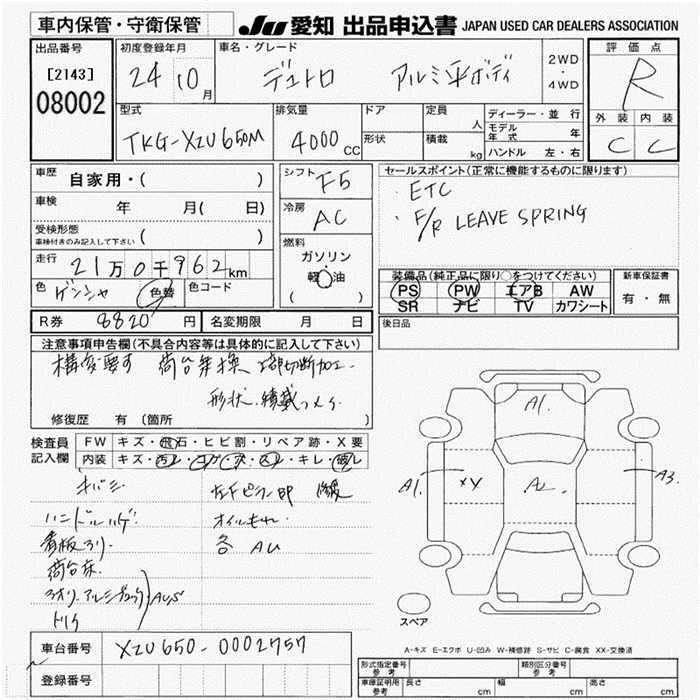 車内保管・守衛保管
JU 愛知 出品申込書 JAPAN USED CAR DEALERS ASSOCIATION
出品番号
[2143]
08002
初度登録年月
24 10 月
車名・グレード
デュトロ アルミ平ボディ
2WD
・
4WD
評価点
R
外装 内装
C C
型式
TKG-XZU650M
排気量
4000 CC
ドア
形状
定員
人
積載
kg
ディーラー・並行
モデル年式 年
ハンドル 左・右
車歴 自家用・( )
車検 年 月( 日)
受検形態
車検付きのみ記入して下さい ( )
走行 21万0千962km
色 ゲンシャ 色替 色コード
シフト F5
冷房 AC
燃料
ガソリン
軽油
( )
セールスポイント(正常に機能するものに限ります)
・ETC
・F/R LEAVE SPRING
装備品(純正品に限り○をつけてください)
PS PW エアB AW
SR ナビ TV カワシート
新車保証書
有・無
後日品
R券 8820円 名変期限 月 日
注意事項申告欄(不具合内容等は具体的に記入して下さい)
構変要す 荷台架換
形状、積載
修復歴 有 (箇所 )
検査員
記入欄
FW キズ・飛石・ヒビ割・リペア跡・X要
内装 キズ・汚レ・コゲ・穴・スレ・キレ・破レ
ハンドルハゲ
オイルもれ
各 AU
看板
荷台床
A1.
A1. XY A2 A3.
スペア
車台番号 XZU650-0002757
登録番号
A-キズ E-エクボ U-凹み W-補修跡 S-サビ C-腐食 XX-交換済
形式指定番号 参考
類別区分番号 参考
車庫証明用 参考 長さ cm 幅 cm 高さ cm